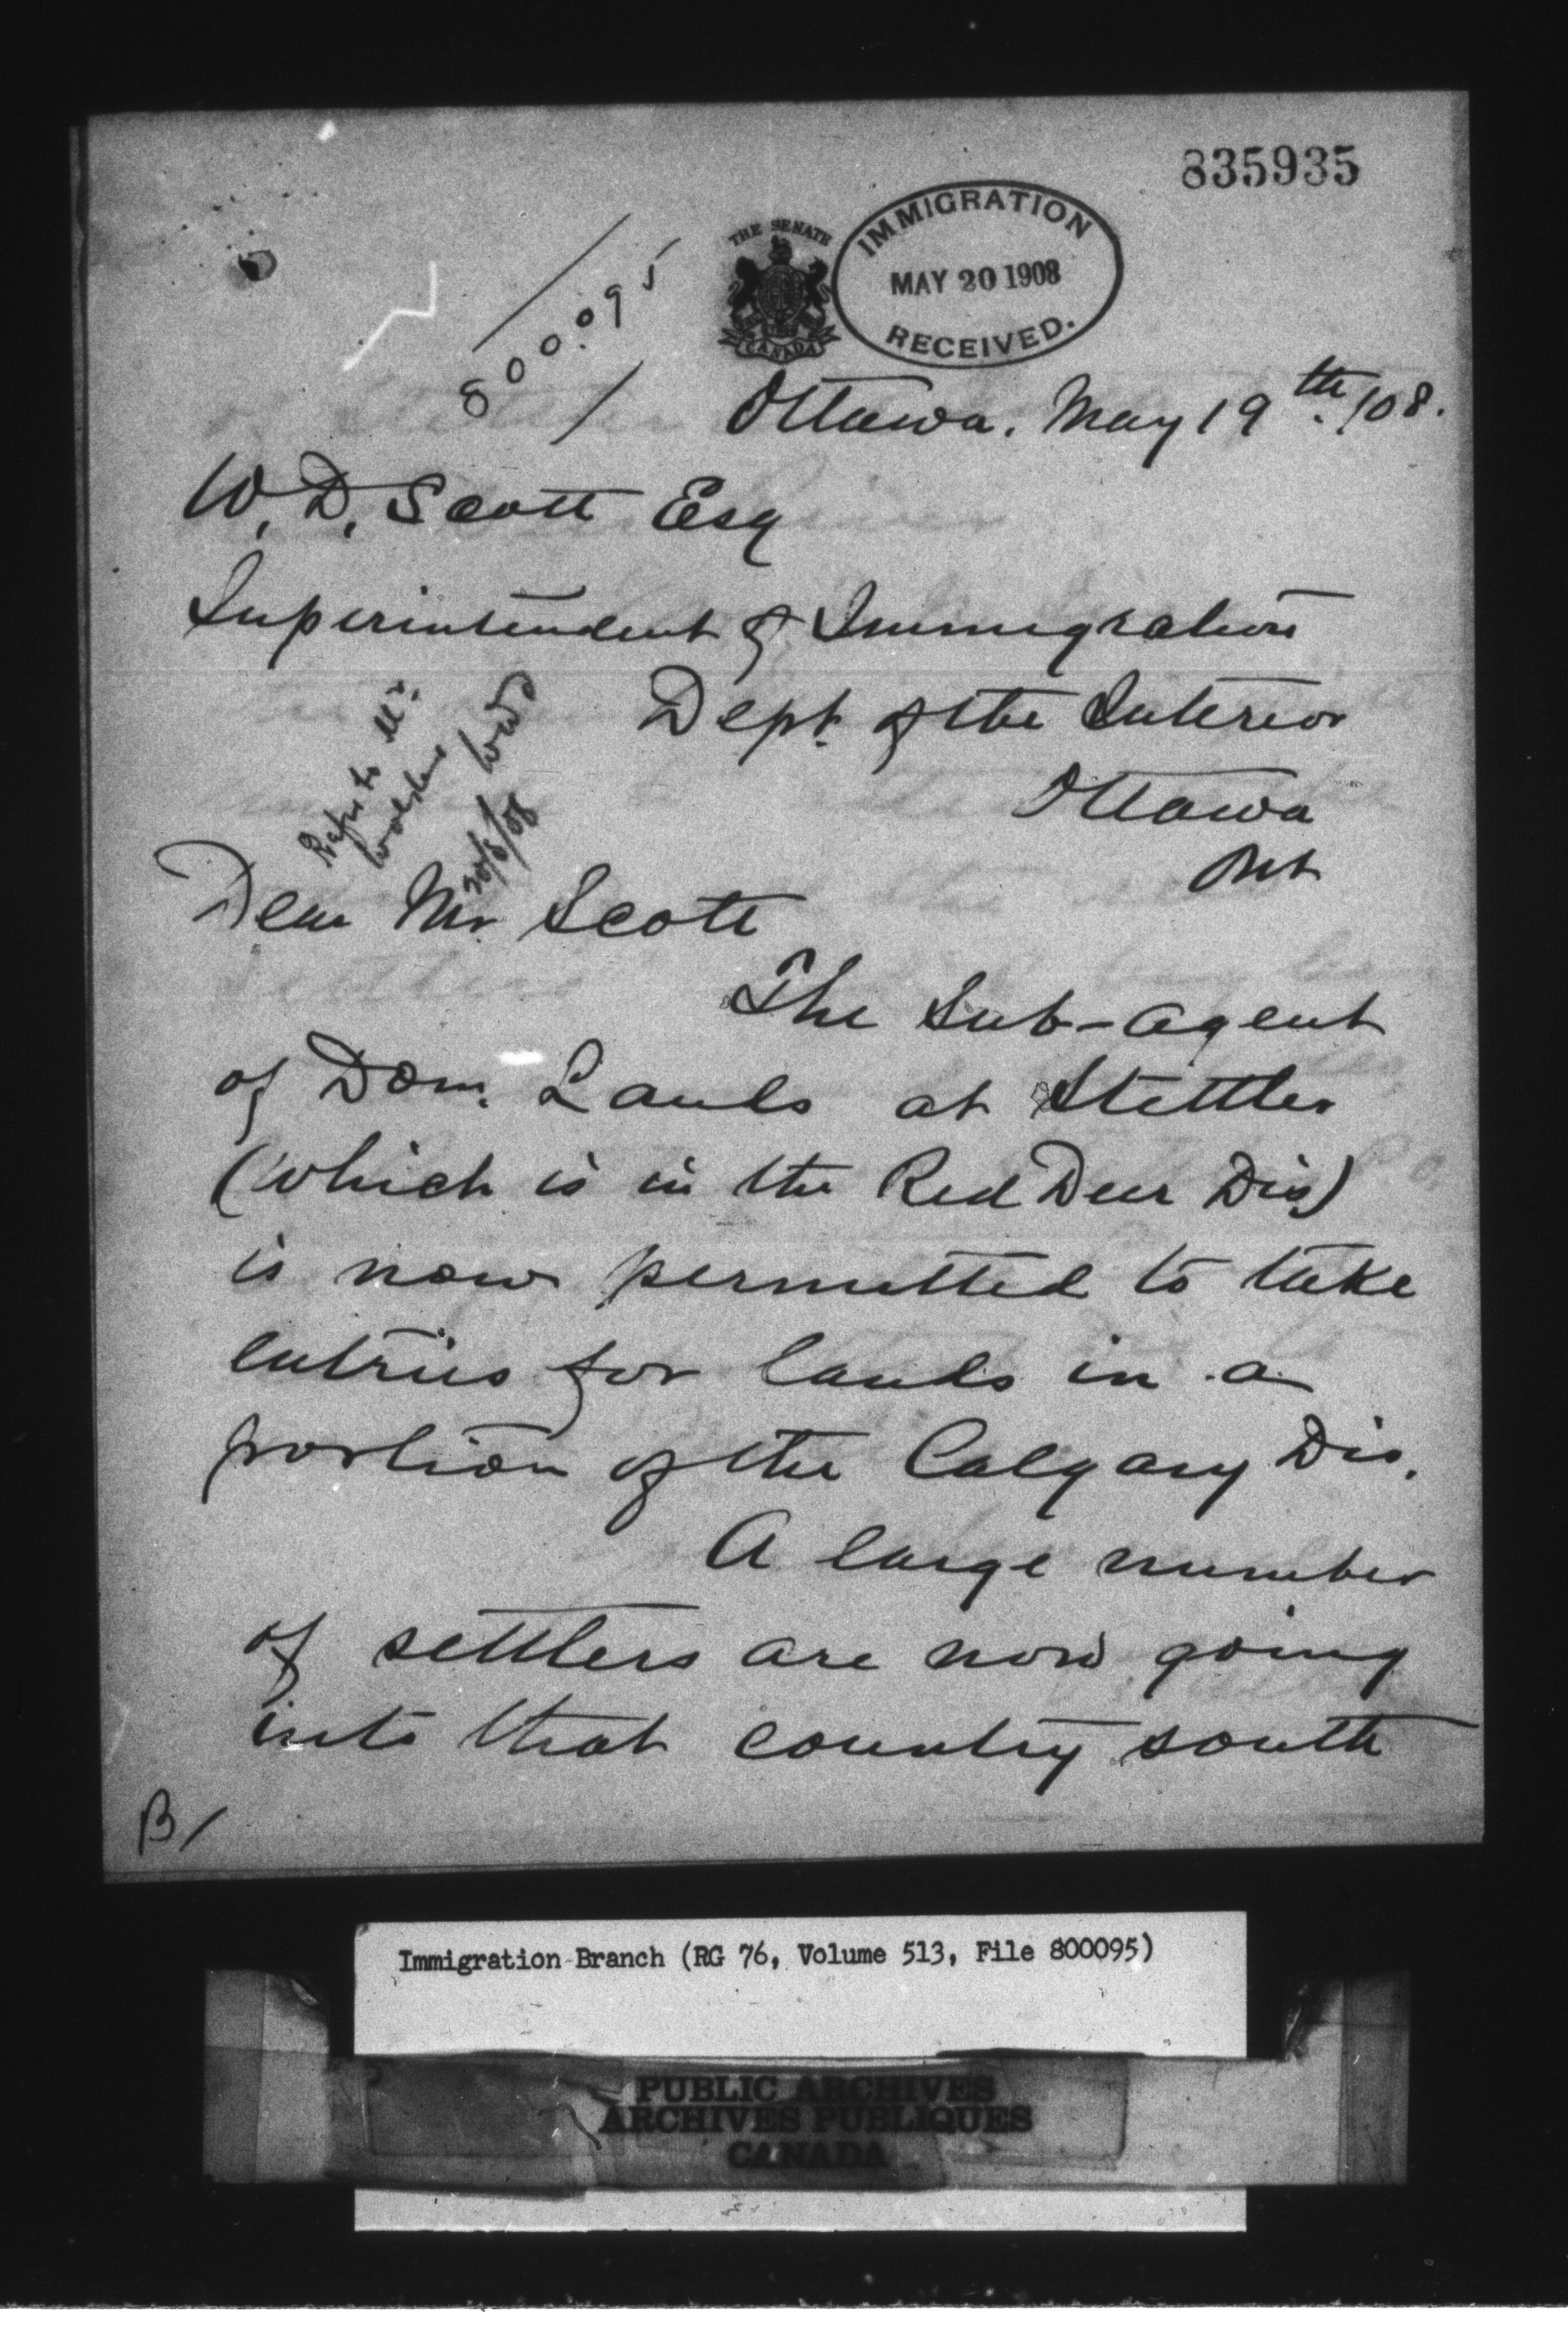 835935
THE SENATE
CANADA
IMMIGRATION
MAY 20 1908
RECEIVED.
800.095
Ottawa. May 19th/08.
W. D. Scott Esq
Superintendent of Immigration
Dept. of the Interior
Ottawa
Ont
Refer to Mr.
WDS
20/5/08
Dear Mr. Scott
The Sub-agent
of Dom. Lands at Stettler
(which is in the Red Deer Dis)
is now permitted to take
entries for lands in a
portion of the Calgary Dis.
A large number
of settlers are now going
into that country south
B/
Immigration Branch (RG 76, Volume 513, File 800095)
PUBLIC ARCHIVES
ARCHIVES PUBLIQUES
CANADA